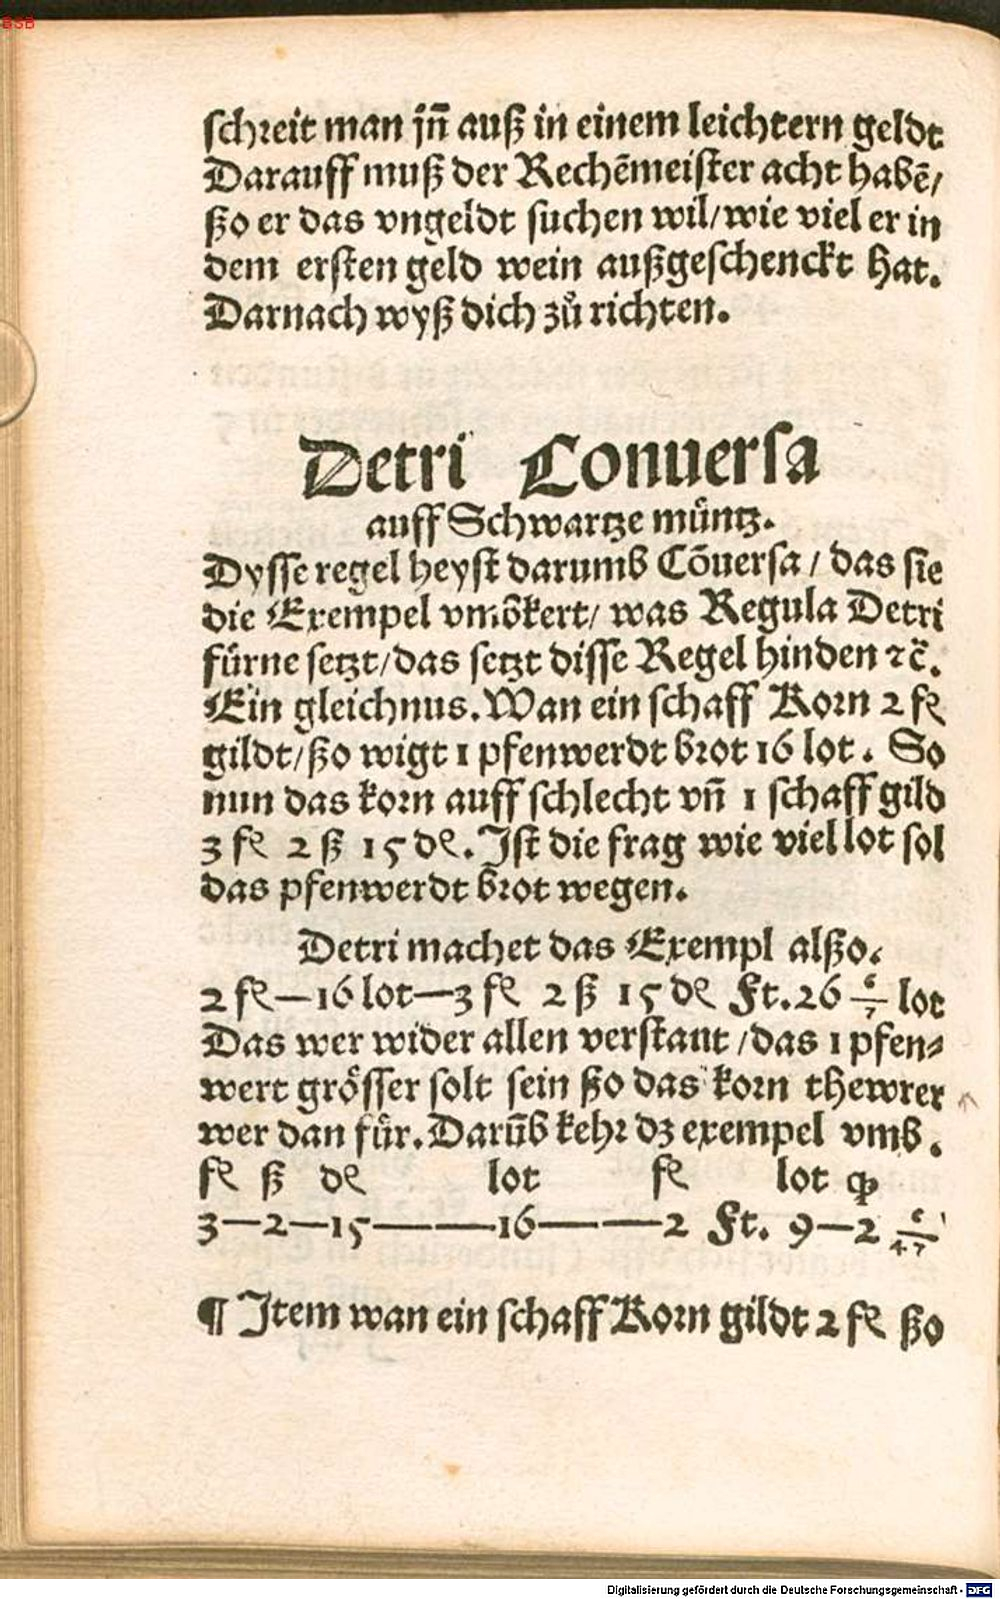 BSB
schreit man jñ auß in einem leichtern geldt
Darauff muß der Rechēmeister acht habē/
ßo er das vngeldt suchen wil/wie viel er in
dem ersten geld wein außgeschenckt hat.
Darnach wyß dich zů richten.
Detri Conuersa
auff Schwartze müntz.
Dysse regel heyst darumb Cōuersa/ das sie
die Exempel vmbkert/ was Regula Detri
fürne setzt/das setzt disse Regel hinden ꝛc̄.
Ein gleichnus. Wan ein schaff Korn 2 fl
gildt/ßo wigt 1 pfenwerdt brot 16 lot. So
nun das korn auff schlecht vñ 1 schaff gild
3 fl 2 ß 15 dl. Ist die frag wie viel lot sol
das pfenwerdt brot wegen.
Detri machet das Exempl alßo.
2 fl—16 lot—3 fl 2 ß 15 dl Ft. 26 6/7 lot
Das wer wider allen verstant/das 1 pfen⸗
wert grösser solt sein ßo das korn thewrer
wer dan für. Darūb kehr dz exempel vmb.
fl ß dl lot fl lot
3—2—15———16———2 Ft. 9—2 6/47
¶ Item wan ein schaff Korn gildt 2 fl ßo
Digitalisierung gefördert durch die Deutsche Forschungsgemeinschaft - DFG